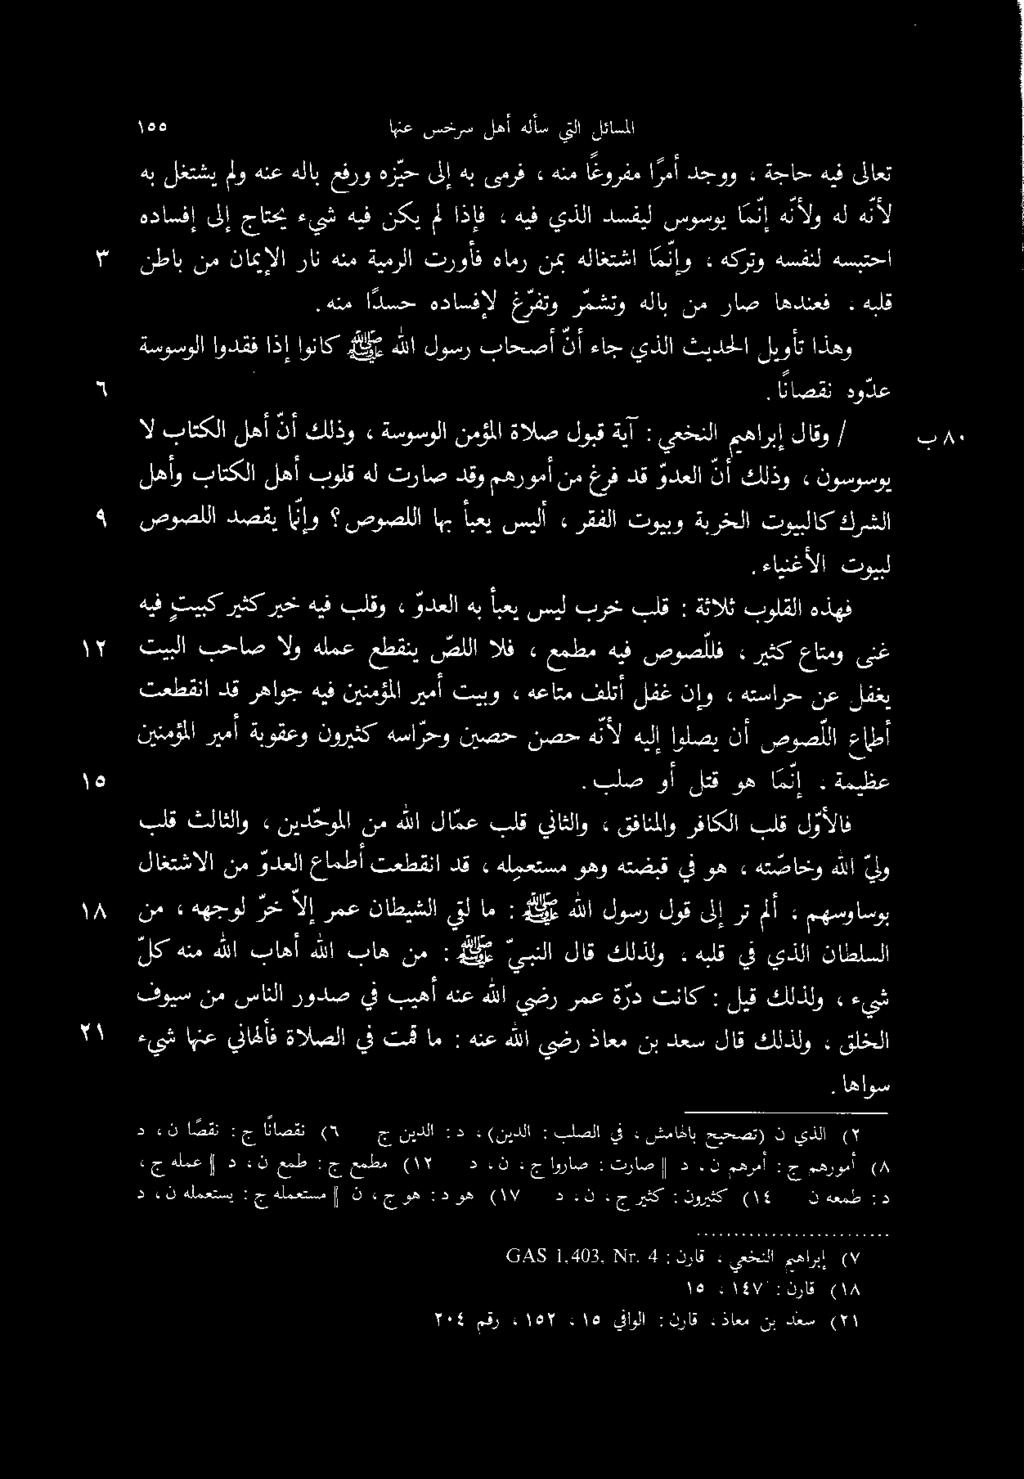 المسائل التي سأله أهل سرخس عنها ١٥٥
تعالى فيه حاجة ، ووجد أمرًا مفروغًا منه ، فرمى به إلى حيّزه ورفع باله عنه ولم يشتغل به
لأنّه له ولأنّه إنّما يوسوس ليفسد الذي فيه ، فإذا لم يكن فيه شيء يحتاج إلى إفساده
احتبسه لنفسه وتركه ، وإنّما اشتغاله بمن رماه فأورت الرمية منه نار الإيمان من باطن ٣
قلبه . فعندها صار من باله وتشمّر وتفرّغ لإفساده حسدًا منه .
وهذا تأويل الحديث الذي جاء أنّ أصحاب رسول الله ﷺ كانوا إذا فقدوا الوسوسة
عدّوه نقصانًا . ٦
٨٠ ب / وقال إبراهيم النخعي : آية قبول صلاة المؤمن الوسوسة ، وذلك أنّ أهل الكتاب لا
يوسوسون ، وذلك أنّ العدوّ قد فرغ من أمورهم وقد صارت له قلوب أهل الكتاب وأهل
الشرك كالبيوت الخربة وبيوت الفقر ، أليس يعبأ بها اللصوص ؟ وإنّما يقصد اللصوص ٩
لبيوت الأغنياء .
فهذه القلوب ثلاثة : قلب خرب ليس يعبأ به العدوّ ، وقلب فيه خير كثير كبيتٍ فيه
غنى ومتاع كثير ، فللّصوص فيه مطمع ، فلا اللصّ ينقطع عمله ولا صاحب البيت ١٢
يغفل عن حراسته ، وإن غفل أتلف متاعه ، وبيت أمير المؤمنين فيه جواهر قد انقطعت
أطماع اللّصوص أن يصلوا إليه لأنّه حصن حصين وحرّاسه كثيرون وعقوبة أمير المؤمنين
عظيمة . إنّما هو قتل أو صلب . ١٥
فالأوّل قلب الكافر والمنافق ، والثاني قلب عمّال الله من الموحّدين ، والثالث قلب
وليّ الله وخاصّته ، هو في قبضته وهو مستعمِله ، قد انقطعت أطماع العدوّ من الاشتغال
بوساوسهم . ألم تر إلى قول رسول الله ﷺ : ما لقي الشيطان عمر إلّا خرّ لوجهه ، من ١٨
السلطان الذي في قلبه . ولذلك قال النبيّ ﷺ : من هاب الله أهاب الله منه كلّ
شيء ، ولذلك قيل : كانت درّة عمر رضي الله عنه أهيب في صدور الناس من سيوف
الخلق ، ولذلك قال سعد بن معاذ رضي الله عنه : ما قمت في الصلاة فألهاني عنها شيء ٢١
سواها .
٢) الذي ن (تصحيح بالهامش ، في الصلب : الذين) ، د : الذين ج ٦) نقصانًا ج : نقصًا ن ، د
٨) أمورهم ج : أمرهم ن ، د ‖ صارت : صاروا ج ، ن ، د ١٢) مطمع ج : طمع ن ، د ‖ عمله ج ،
د : طمعه ن ١٤) كثيرون : كثير ج ، ن ، د ١٧) هو د : وهو ج ، ن ‖ مستعمله ج : يستعمله ن ، د
٧) إبراهيم النخعي ، قارن : GAS 1,403, Nr. 4
١٨) قارن : ١٤٧ ، ١٥
٢١) سعد بن معاذ ، قارن : الوافي ١٥ ، ١٥٢ ، رقم ٢٠٤